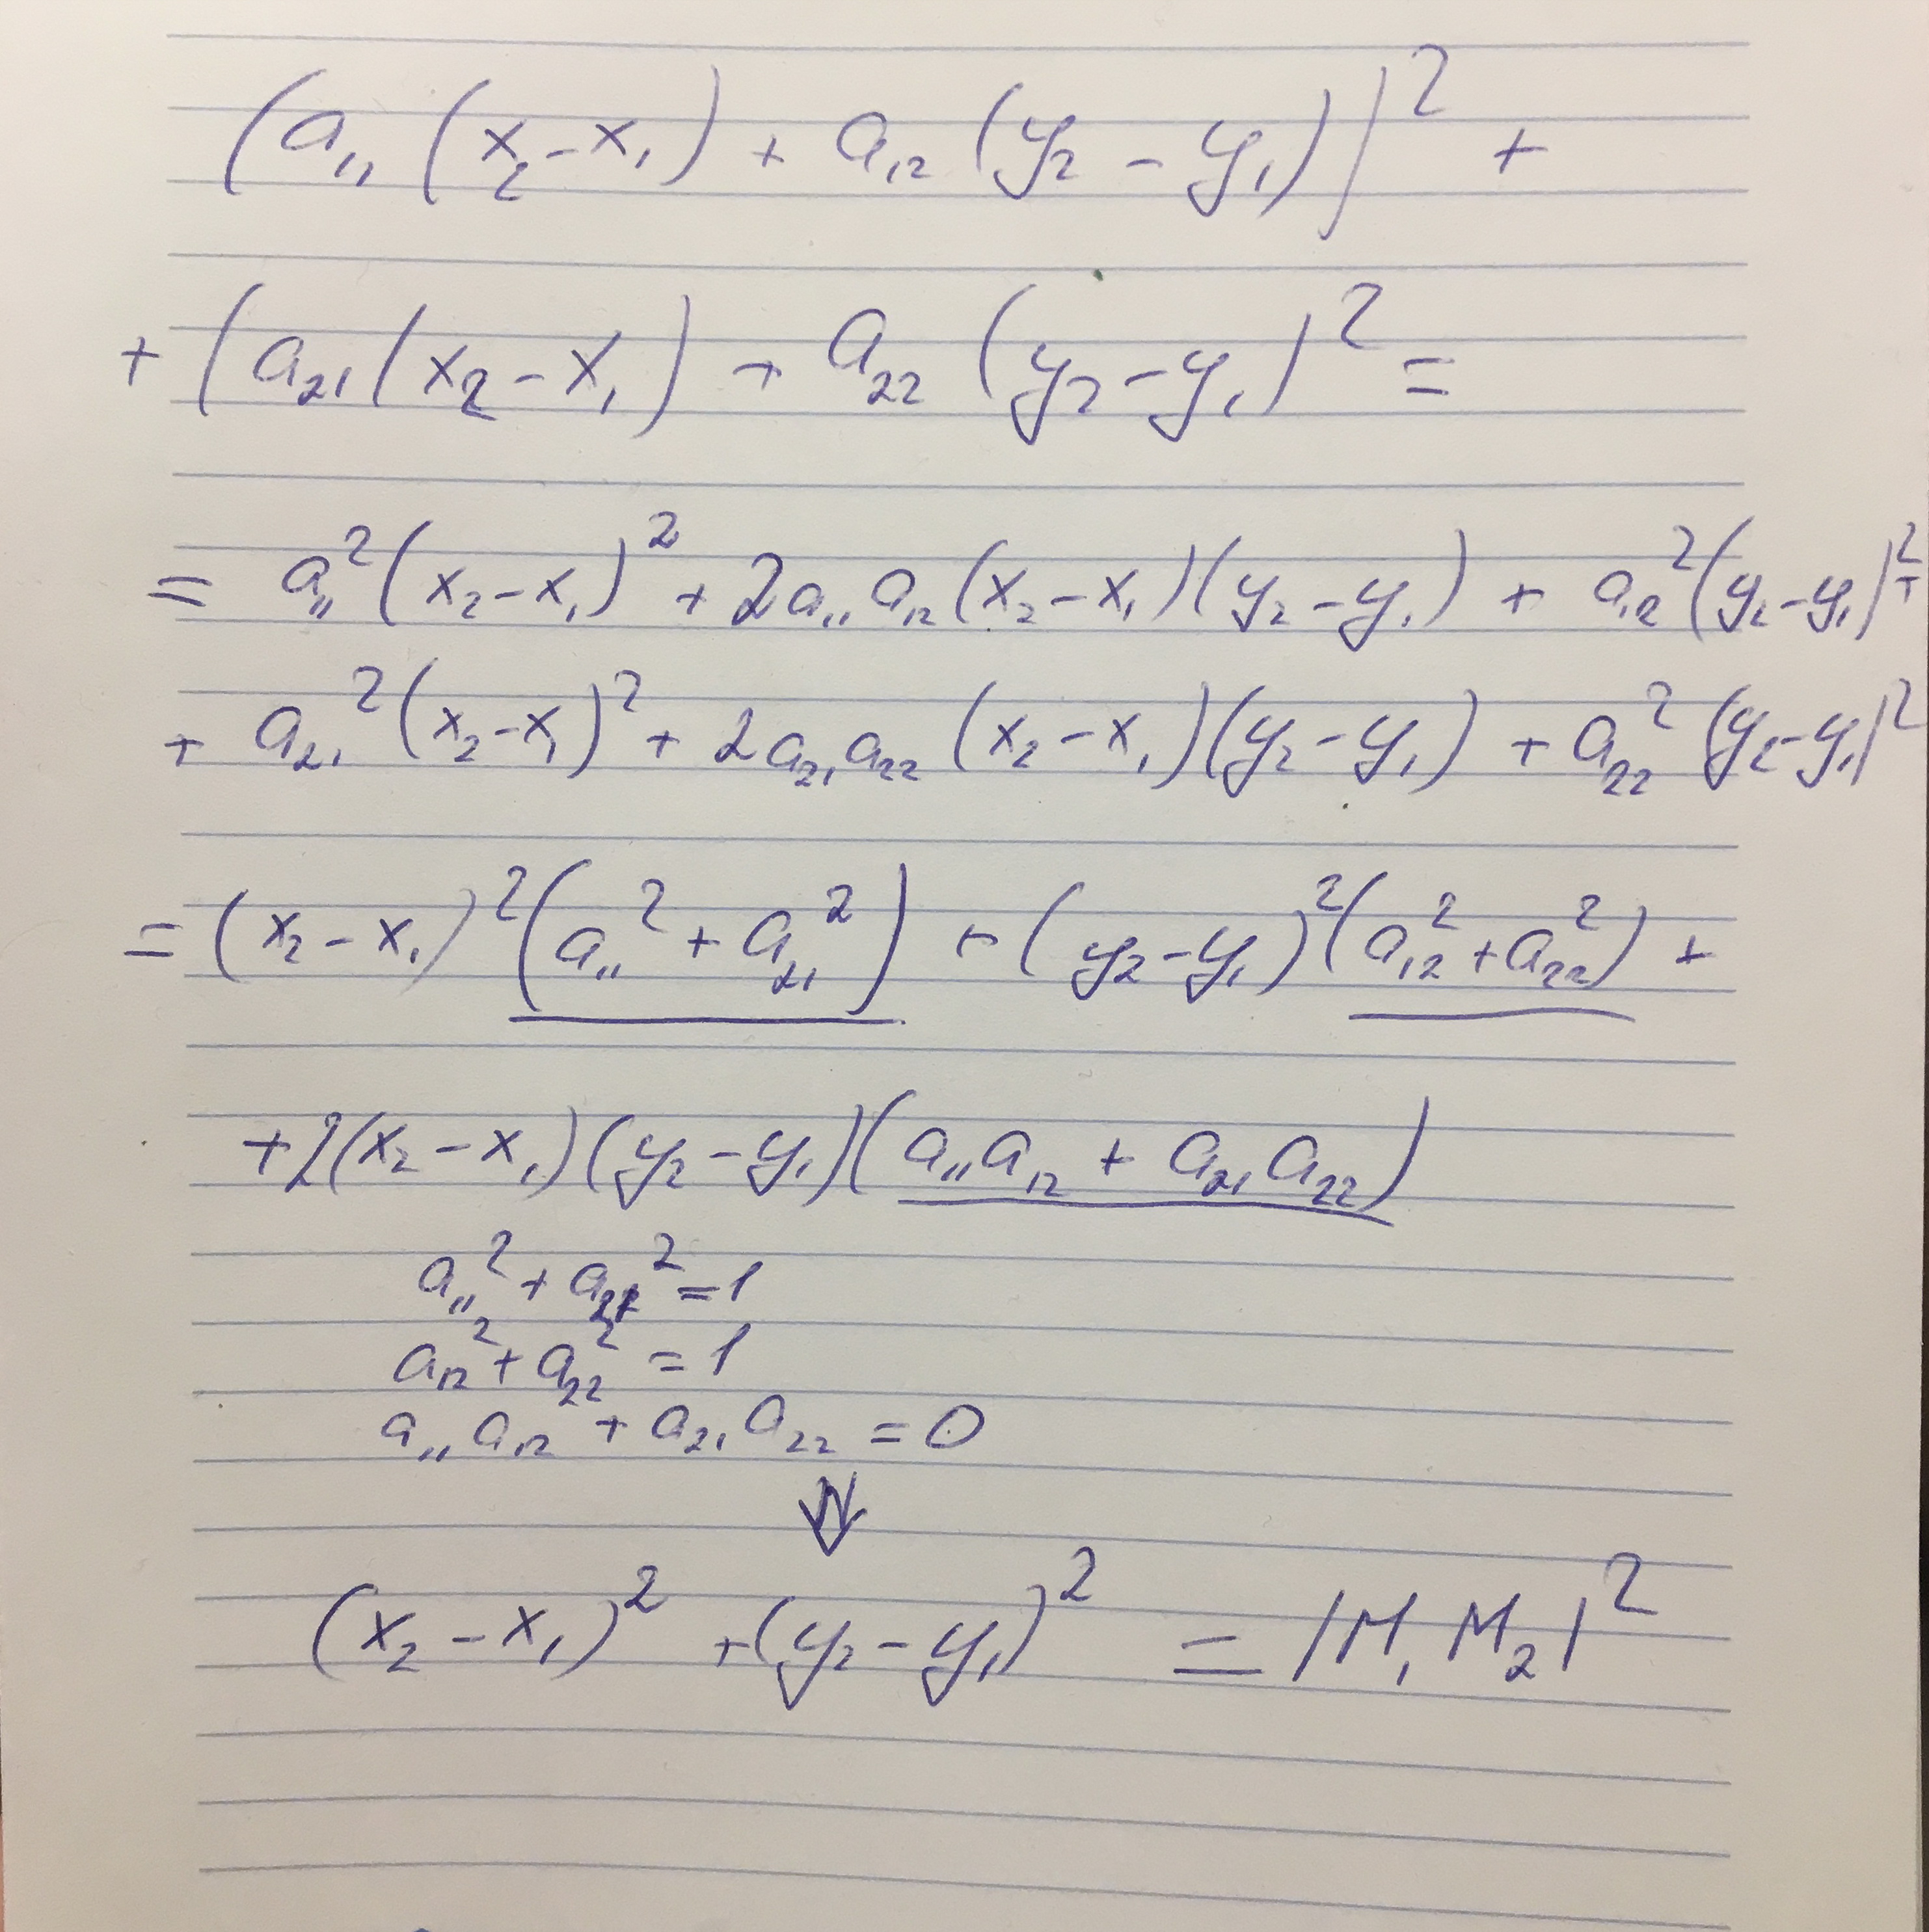 (a₁₁(x₂-x₁) + a₁₂(y₂-y₁))² +
+ (a₂₁(x₂-x₁) + a₂₂(y₂-y₁)² =
= a₁₁²(x₂-x₁)² + 2a₁₁a₁₂(x₂-x₁)(y₂-y₁) + a₁₂²(y₂-y₁)² +
+ a₂₁²(x₂-x₁)² + 2a₂₁a₂₂(x₂-x₁)(y₂-y₁) + a₂₂²(y₂-y₁)²
= (x₂-x₁)²(a₁₁² + a₂₁²) + (y₂-y₁)²(a₁₂² + a₂₂²) +
+ 2(x₂-x₁)(y₂-y₁)(a₁₁a₁₂ + a₂₁a₂₂)
a₁₁² + a₂₁² = 1
a₁₂² + a₂₂² = 1
a₁₁a₁₂ + a₂₁a₂₂ = 0
⇓
(x₂-x₁)² + (y₂-y₁)² = |M₁M₂|²